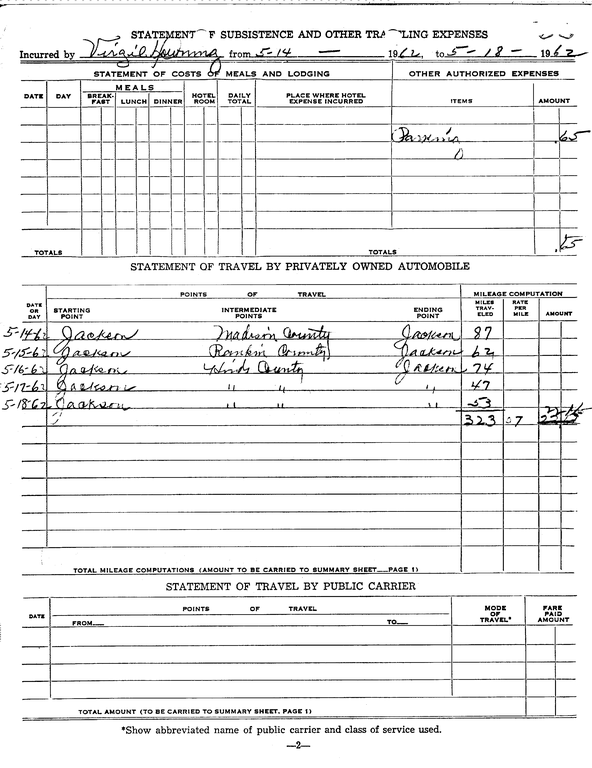 STATEMENT F SUBSISTENCE AND OTHER TRA LING EXPENSES
Incurred by Virgil from 5-14 — 1962, to 5-18- 1962
STATEMENT OF COSTS OF MEALS AND LODGING OTHER AUTHORIZED EXPENSES
DATE DAY MEALS BREAK-FAST LUNCH DINNER HOTEL ROOM DAILY TOTAL PLACE WHERE HOTEL EXPENSE INCURRED ITEMS AMOUNT
Parking .65
TOTALS TOTALS
STATEMENT OF TRAVEL BY PRIVATELY OWNED AUTOMOBILE
POINTS OF TRAVEL MILEAGE COMPUTATION
DATE OR DAY STARTING POINT INTERMEDIATE POINTS ENDING POINT MILES TRAV-ELED RATE PER MILE AMOUNT
5-14-62 Jackson Madison County Jackson 87
5-15-62 Jackson Rankin County Jackson 62
5-16-62 Jackson Hinds County Jackson 74
5-17-62 Jackson " " " 47
5-18-62 Jackson " " " 53
323 07
TOTAL MILEAGE COMPUTATIONS (AMOUNT TO BE CARRIED TO SUMMARY SHEET__PAGE 1)
STATEMENT OF TRAVEL BY PUBLIC CARRIER
DATE POINTS OF TRAVEL MODE OF TRAVEL* FARE PAID AMOUNT
FROM__ TO__
TOTAL AMOUNT (TO BE CARRIED TO SUMMARY SHEET, PAGE 1)
*Show abbreviated name of public carrier and class of service used.
—2—